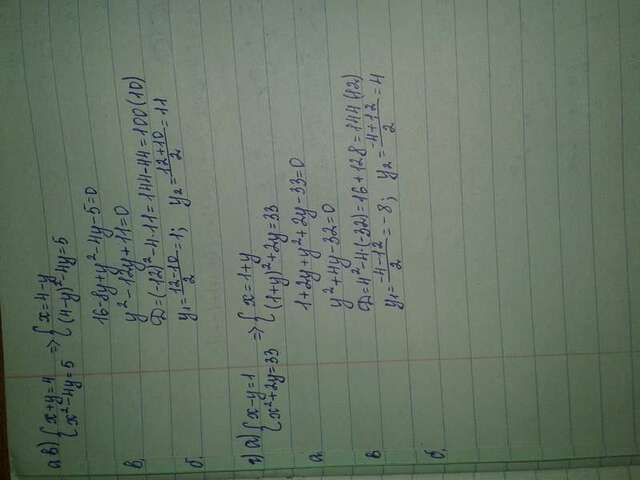 а в) { x+y=4 => { x=4-y
{ x²-4y=5 { (4-y)²-4y=5
16-8y+y²-4y-5=0
в. y²-12y+11=0
D=(-12)²-4·11=144-44=100(10)
б. y₁=12-10/2=1; y₂=12+10/2=11
г) а) { x-y=1 => { x=1+y
{ x²+2y=33 { (1+y)²+2y=33
а. 1+2y+y²+2y-33=0
y²+4y-32=0
в D=4²-4(-32)=16+128=144(12)
y₁=-4-12/2=-8; y₂=-4+12/2=4
б.